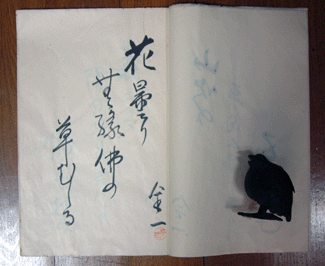 花曇り
無縁佛の
草むしる
金一